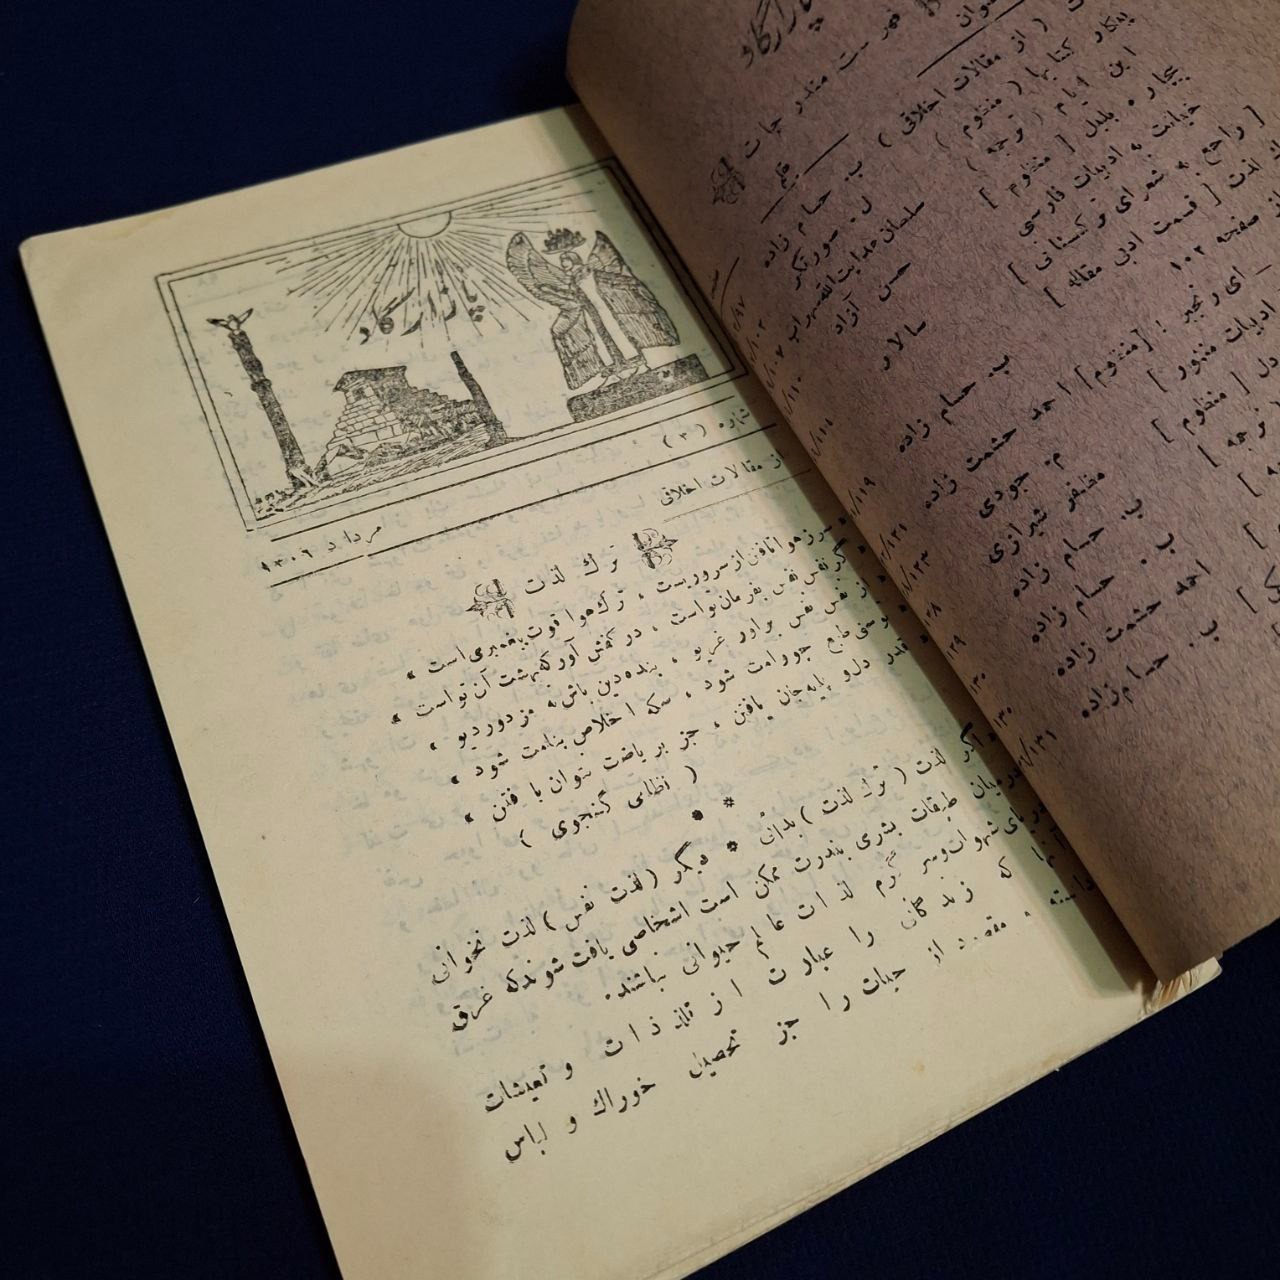 پازارگاد
فهرست مندرجات
قلم
( از مقالات اخلاقی ) ب. حسام زاده
کتابها ( منظوم )
این ایام ( ترجمه )
بلبل [ منظوم ]
خیانت به ادبیات فارسی
[ راجع به شعرای ترکستان ]
لذت [ قسمت ادبی مقاله ]
صفحه ۱۰۲
ای رنجبر : [ منظوم ] احمد حشمت زاده
ادبیات منثور ]
دل [ منظوم ]
ترجمه ]
حسن آزاد
سالار
ب. حسام زاده
م. جودی
مظفر شیرازی
ب. حسام زاده
ب. حسام زاده
احمد حشمت زاده
ب. حسام زاده
پازارگاد
شماره ( ۳ )
مرداد ۱۳۰۶
از مقالات اخلاقی
ترك لذت
سر ز هوا تافتن از سروریست ، ترك هوا قوت پیغمبری است »
گر نفس نفس بفرمان تو است ، در کفش آور که بهشت آن تو است »
از نفس نفس براور غریو ، بنده دین باش نه مزدور دیو »
توسنی طبع چو رامت شود ، سکه اخلاص بنامت شود »
قدر دل و پایه جان یافتن ، جز بریاضت نتوان یافتن »
( نظامی گنجوی )
* * *
اگر لذت ( ترك لذت ) بدانی * دیگر ( لذت نفس ) لذت نخوانی
در میان طبقات بشری بندرت ممکن است اشخاصی یافت شوند که غرق
دریای شهوات و سر گرم لذات عالم حیوانی نباشند.
آنها که زندگانی را عبارت از تلذذات و تعیشات
دانسته ، مقصود از حیات را جز تحصیل خوراك و لباس